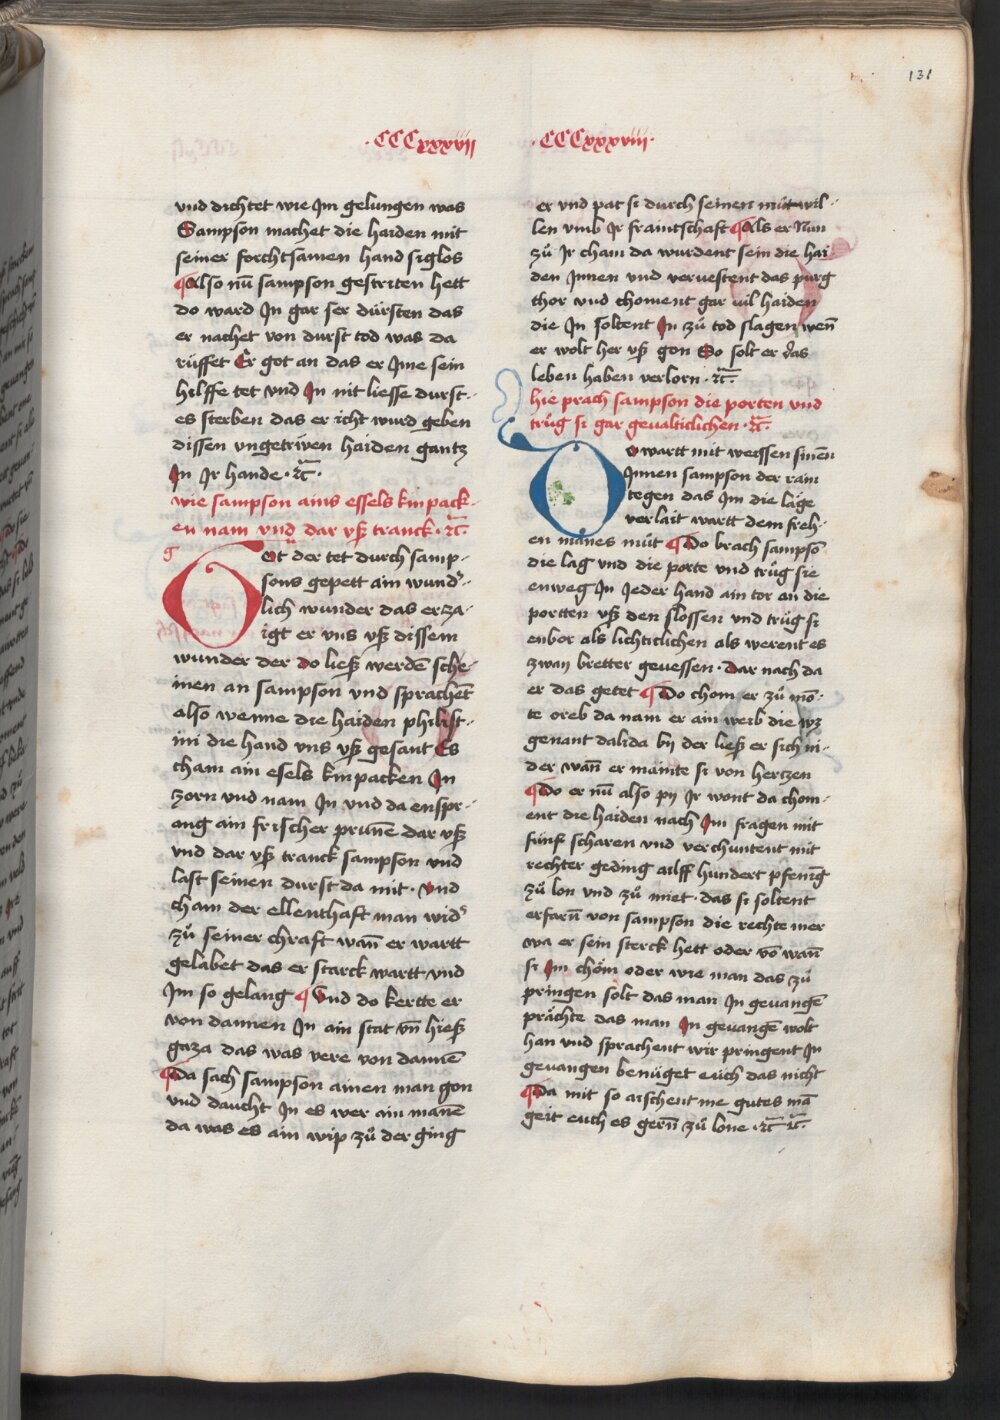 131
·CCCxxxvii
vnd dichtet wie Jm gelungen was
Sampson machet die haiden mit
seiner forchtsamen hand siglos
¶Also nu̅ sampson gestriten hett
do ward Jn gar ser dürsten das
er nachet von durst tod was da
rüffet Er got an das er Jme sein
hilffe tet vnd Jn nit liesse durst-
es sterben das er icht wurd geben
dissen vngetriven haiden gantz
Jn Jr hande · ꝛc̅ ·
wie sampson ains essels kinpack-
en nam vnd dar vß tranck · ꝛc̅
g
Ot der tet durch samp-
sons gepett ain wund̓-
lich wunder das erza-
igt er vns vß dissem
wunder der do ließ werde̅ sche-
inen an sampson vnd sprachent
also wenne die haiden philist-
ini die hand vns vß gesant Es
cham ain esels kinpacken Jn
zorn vnd nam Jn vnd da enspr-
ang ain frischer prun̅e dar vß
vnd dar vß tranck sampson vnd
last seinen durst da mit · vnd
cham der ellenthaft man wid̓
zů seiner chraft wan̅ er wartt
gelabet das er starck wartt vnd
Jm so gelang ¶Vnd do kertte er
von dannen Jn ain stat vn̅ hieß
gaza das was vere von danne̅
¶Da sach sampson ainen man gon
vnd daucht Jn es wer ain mane̅
da was es ain wip zů der ging
·CCCxxxviii·
er vnd pat si durch seinen můtwil-
len vmb Jr fraintschaft ¶Als er Nun
zů Jr cham da wurdent sein die hai
den Jnnen vnd veruestent das purg
thor vnd choment gar vil haiden
die Jn soltent Jn zů tod slagen wen̅
er wolt her vß gon So solt er das
leben haben verlorn · ꝛc̅ ·
hie prach sampson die porten vnd
trůg si gar geualticlichen · ꝛc̅ ·
o wartt mit weissen sinen
Jnnen sampson der rain
tegen das Jm die läge
verlait wartt dem freh-
en manes můt ¶Do brach sampso̅
die lag vnd die porte vnd trůg sie
enweg Jn Jeder hand ain tor an die
portten vß den slossen vnd trůg si
enbor als lichticlichen als werent es
zway bretter gevessen · dar nach da
er das getet ¶Do chom er zů mo̅-
te oreb da nam er ain weib die wz
genant dalida bÿ der ließ er sich ni-
der wan̅ er mainte si von hertzen
¶Do er nu̅ also pÿ Jr wont da chom-
ent die haiden nach Jm fragen mit
fünf scharen vnd verchuntent mit
rechter geding ailff hundert pfenig̅
zů lon vnd zů miet · das si soltent
erfarn̅ von sampson die rechte mer
wa er sein sterck hett oder vo̅ wan̅
si Jm chöm oder wie man das zů
pringen solt das man Jn geuange̅
prächte das man Jn geuange̅ wolt
han vnd sprachent wir pringent Jn
geuangen benüget eüch das nicht
¶Da mit so aischent me gutes ma̅
geit euch es gern̅ zů lone · ꝛc̅ ꝛc̅ ·